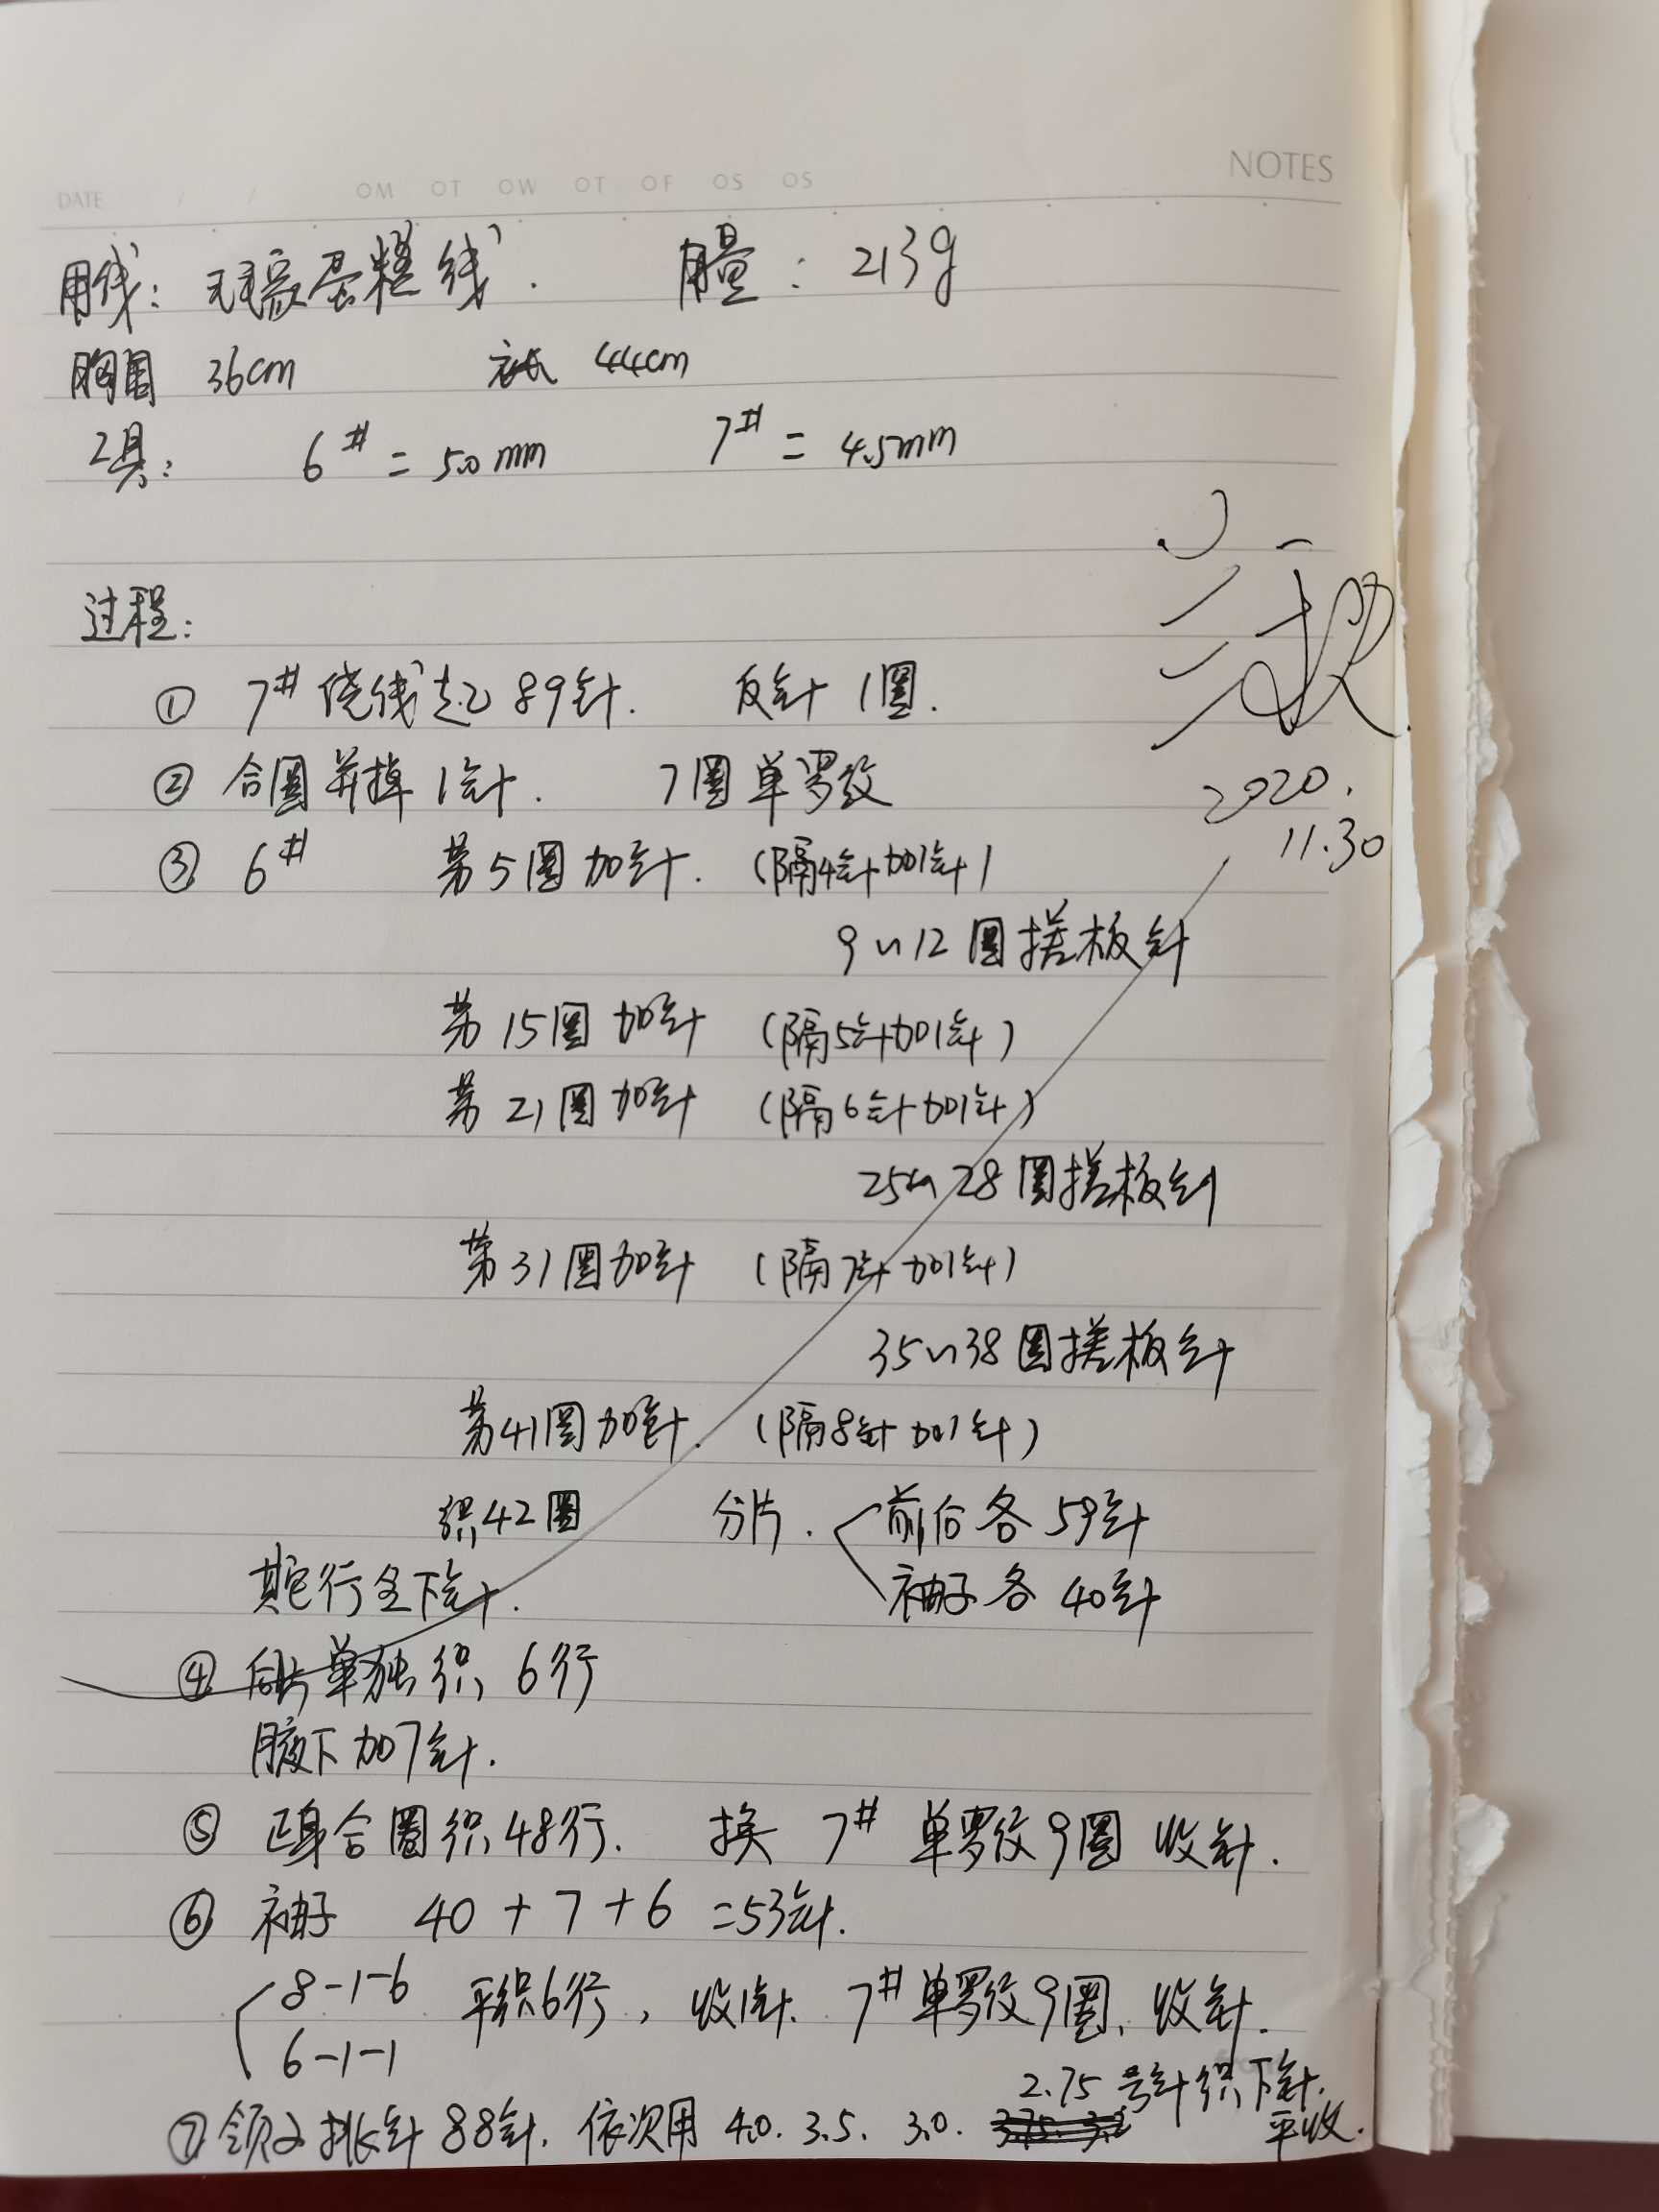 NOTES
DATE / / OM OT OW OT OF OS OS
用线: 蛋糕线. 用量: 213g
胸围 36cm 衣长 44cm
工具: 6# = 5.0mm 7# = 4.5mm
过程:
① 7# 绕线起89针. 反针1圈.
② 合圈并掉1针. 7圈单罗纹
2020.
11.30
③ 6# 第5圈加针. (隔4针加1针)
9~12圈搓板针
第15圈加针 (隔5针加1针)
第21圈加针 (隔6针加1针)
25~28圈搓板针
第31圈加针 (隔7针加1针)
35~38圈搓板针
第41圈加针. (隔8针加1针)
织42圈 分片. 前后各59针
袖子各40针
其它行全下针.
④ 后片单独织6行
腋下加7针.
⑤ 正身合圈织48行. 换7#单罗纹9圈 收针.
⑥ 袖子 40+7+6=53针.
8-1-6 平织6行, 收1针. 7#单罗纹9圈, 收针.
6-1-1
2.75号针织下针.
⑦ 领口挑针88针. 依次用4.0. 3.5. 3.0. 平收.